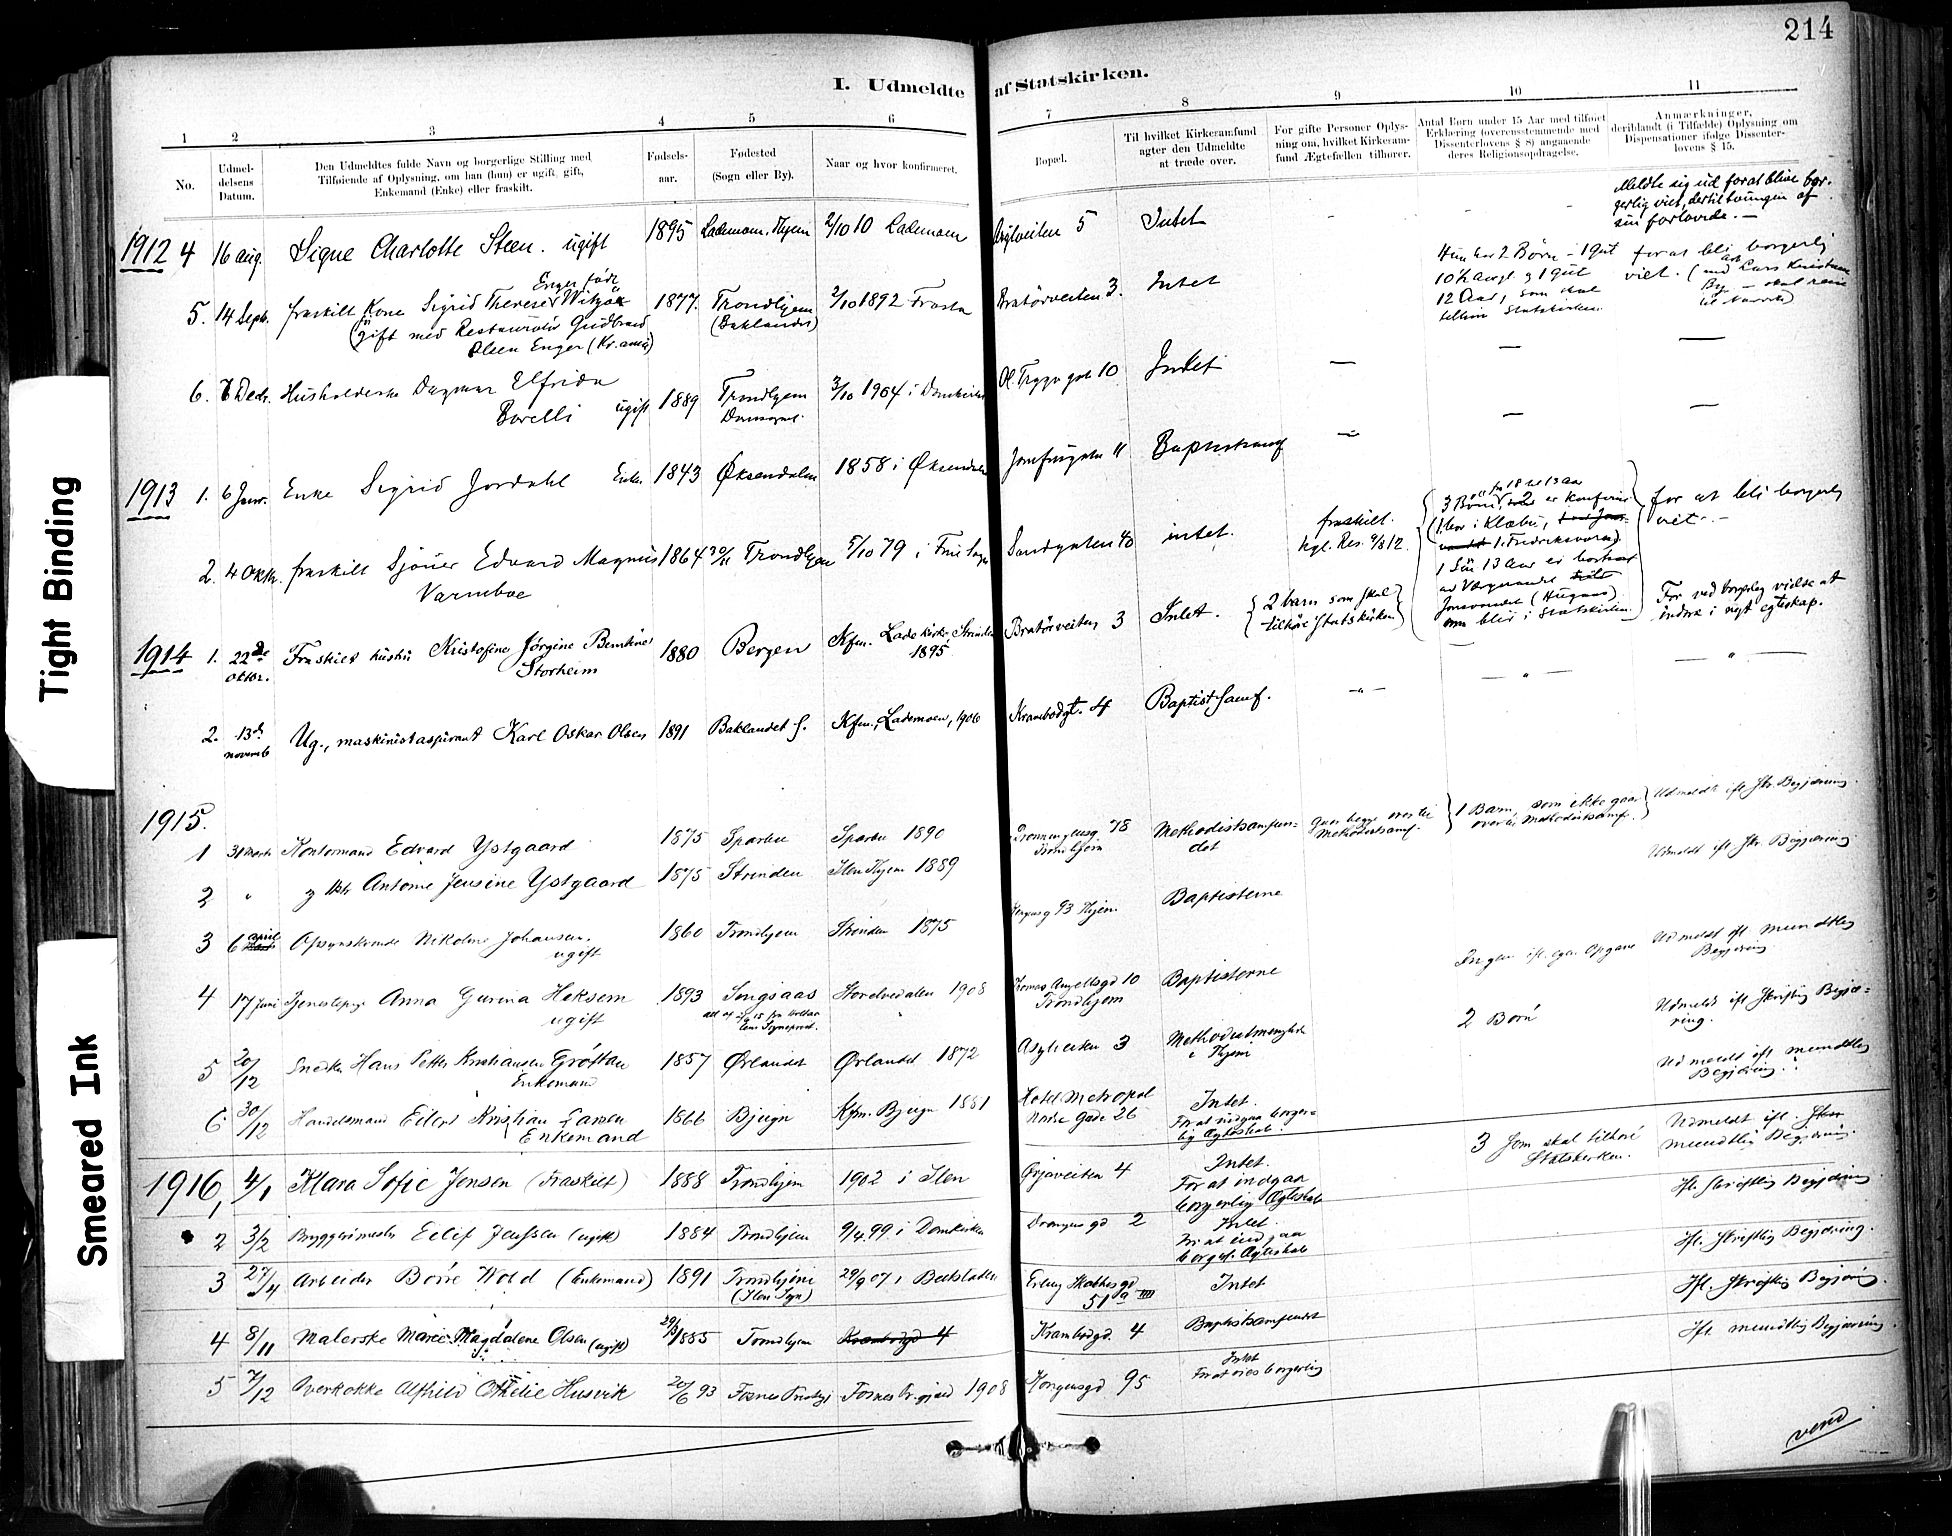 214
I. Udmeldte af Statskirken.
1 2 3 4 5 6 7 8 9 10 11
No.
Udmel-
delsens
Datum.
Den Udmeldtes fulde Navn og borgerlige Stilling med
Tilføiende af Oplysning, om han (hun) er ugift, gift,
Enkemand (Enke) eller fraskilt.
Fødsels-
aar.
Fødested
(Sogn eller By).
Naar og hvor konfirmeret.
Bopæl.
Til hvilket Kirkesamfund
agter den Udmeldte
at træde over.
For gifte Personer Oplys-
ning om, hvilket Kirkesam-
fund Ægtefællen tilhører.
Antal Børn under 15 Aar med tilføiet
Erklæring (overensstemmende med
Dissenterlovens § 8) angaaende
deres Religionsopdragelse.
Anmærkninger,
deriblandt (i Tilfælde) Oplysning om
Dispensationer ifølge Dissenter-
lovens § 15.
Meldte sig ud for at blive bor-
gerlig viet, dertil tvungen af
sin forlovede. —
1912 4 16 aug. Signe Charlotte Steen. ugift 1895 Lademoen, Thjem 2/10 10 Lademoen 5 Intet
5. 14 Septb. fraskilt Kone Sigrid Therese Enger født 1877. Trondhjem 2/10 1892 Frosta Bratørveiten 3. Intet
(gift med Restauratør Gudbrand (Baklandet)
Olsen Enger (Kr.ania)
Hun har 2 Børn – 1 Gut
10½ aargl. og 1 gut
12 Aar, som skal
tilhøre Statskirken.
for at bli borgerlig
viet.
6. Decbr. Husholderske Dagmar Elfrida 1889 Trondhjem 3/10 1904 i Domkirken Ol. Trygv. gt 10 Intet — — —
Borelli ugift Domsognet.
1913 1. 6 Janr. Enke Sigrid Jordahl Enke 1843 Øksendalen 1858 i Øksendalen 11 Baptistsamf — — —
2. 4 Oktbr. fraskilt Sjøuer Edvard Magnus 1864 Trondhjem 5/10 79 i Frue Sogn Sandgaten 40 intet. fraskilt.
Varmboe
Kgl. Res. 9/8 12.
3 Børn fra 18 til 13 aar
er konfirm.
1 bor i Klæbu,
1 Fredriksværn)
1 Søn 13 Aar er bortsat
blir i Statskirken.
for at bli borgerlig
viet. –
1914 1. 22de Fraskilt hustru Kristofine Jørgine Berntine 1880 Bergen Kfm. Lade kirke, Strinden Bratørveiten 3 Intet.
oktbr. Storheim 1895
2 barn som skal
tilhøre Statskirken
For ved borgerlig vielse at
indtræ i nyt egteskap.
2. 13de Ug., maskinistaspirant Karl Oskar Olsen 1891 Baklandet s. Kfm., Lademoen, 1906 Krambodgt. 4 Baptist samf. — " — — " — — " —
novemb
1915.
1 31 Marts Kontormand Edvard Ystgaard 1875 Sparbu Sparbu 1890 Dronningensg. 78 Methodistsamfun-
Trondhjem det
Methodistsamf.
1 Barn, som ikke gaar
over til Methodistsamf.
Udmeldt ifl. Skr. Begjæring.
2 " Antonie Jensine Ystgaard 1875 Strinden Ilen Thjem 1889
Udmeldt ifl. Skr. Begjæring
3 6 april Opsynskvinde Nikoline Johansen. 1860 Trondhjem Strinden 1875 93 Thjem Baptisterne
ugift
Ingen ifl. egen Opgave
Udmeldt ifl. mundtlig
Begjæring
4 17 Juni Tjenestepige Anna Gurina Heksem 1893 Singsaas 1908 Tomas Angellsgd 10 Baptisterne
ugift Trondhjem
2 Børn
Udmeldt ifl Skriftlig Begjæ-
ring.
5 20/12 Snedker Hans Petter Kristiansen Grøftan 1857 Ørlandet Ørlandet 1872 Asylveiten 3 Methodistmenighed
Enkemand i Thjem
Udmeldt ifl. mundtlig
Begjæring.
6 30/12 Handelsmand Eilert Kristian Larsen 1866 Bjugn Kfm. Bjugn 1881 Hotel Metropol Intet.
Enkemand Nordre Gade 26 For at indgaa borger-
lig Ægteskab.
3 som skal tilhøre
Statskirken.
Udmeldt ifl.
mundtlig Begjæring.
1916, 4/1 Klara Sofie Jensen (Fraskilt) 1888 Trondhjem 1902 i Ilen Ørjaveiten 4 Intet.
For at indgaa
borgerlig Ægteskab
Ifl. skriftlig Begjæring
2 3/2 Bryggerimester Eilif Jenssen (ugift) 1884 Trondhjem 9/4.99 i Domkirken 2 Intet.
For at indgaa
borgerl. Ægteskab
Ifl. skriftlig Begjæring.
3 27/4 Arbeider Børre Wold (Enkemand) 1891 Trondhjem 29/9 07 i Bakklandet Erling Skakkesgd Intet
(Ilen Sogn) 51a III
Ifl. skriftlig Begjæring.
4 8/11 Malerske Marie Magdalene Olsen (ugift) 1885 Trondhjem Krambodgd 4 Krambodgd. 4 Baptistsamfundet
Ifl. mundtlig Begjæring.
5 7/12 Overkokke Alfhild Othelie Husvik 20/6 93 Fosnes Prestegj Fosnes Pr.gjæld 1908 Kongensgd 95 Intet
For at vies borgerlig
vend
Tight Binding
Smeared Ink